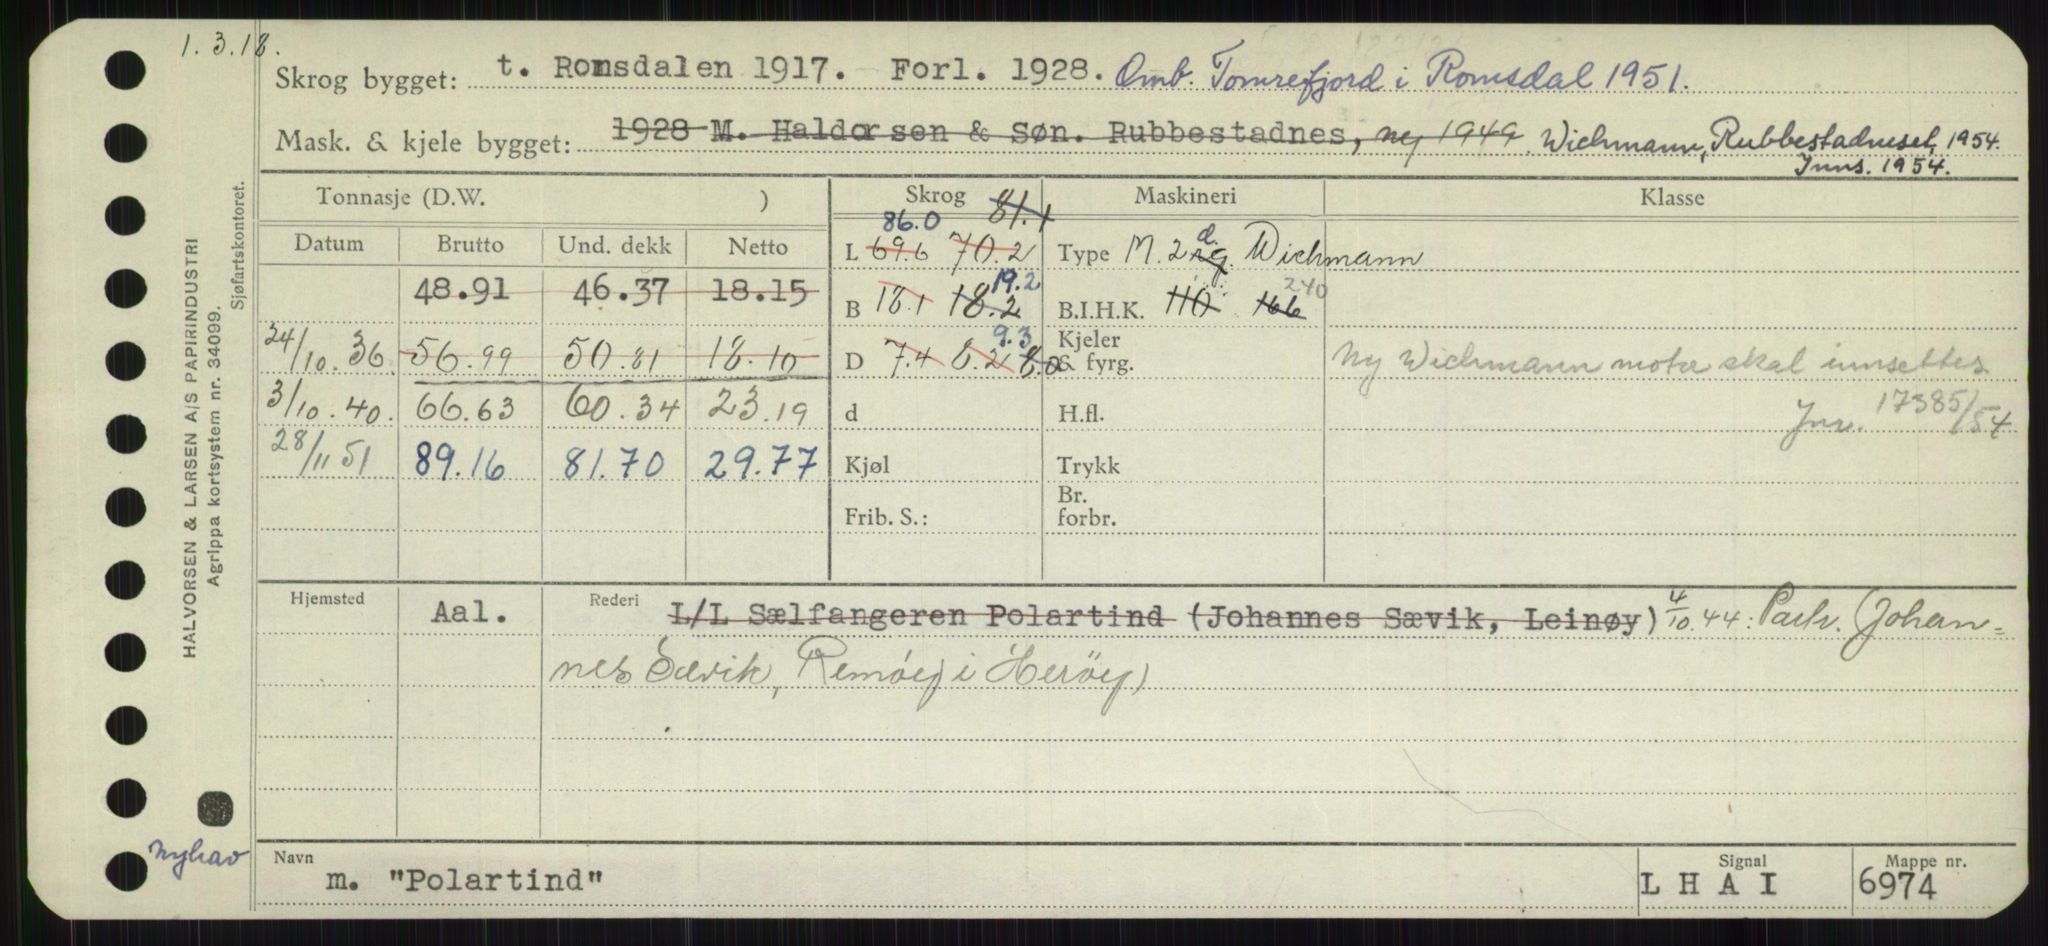 1. 3. 18.
Skrog bygget: t. Romsdalen 1917. Forl. 1928. Omb. Tomrefjord i Romsdal 1951.
Mask. & kjele bygget: 1928 M. Haldorsen & Søn. Rubbestadnes, ny 1949. Wichmann, Rubbestadneset, 1954.
Inns. 1954.
Tonnasje (D.W. ) Skrog 81.1 Maskineri Klasse
86.0
Datum Brutto Und. dekk Netto L 69.6 70.2 Type M. 2 s.g. d. Wichmann
48.91 46.37 18.15 B 18.1 18.2 19.2 B.I.H.K. 110 166 240
24/10. 36. 56.99 50.81 18.10 D 7.4 8.2 8.2 9.3 Kjeler & fyrg. Ny Wichmann motor skal innsettes
3/10. 40. 66.63 60.34 23.19 d H.fl. Jnr. 17385/54
28/11 51 89.16 81.70 29.77 Kjøl Trykk
Frib. S.: Br. forbr.
Hjemsted Aal. Rederi L/L Sælfangeren Polartind (Johannes Sævik, Leinøy) 4/10. 44: Partr. (Johan=
nes Sævik, Remøy i Herøy)
Navn m. "Polartind" Signal L H A I Mappe nr. 6974
Nyhav
HALVORSEN & LARSEN A/S PAPIRINDUSTRI
Agrippa kortsystem nr. 34099.
Sjøfartskontoret.